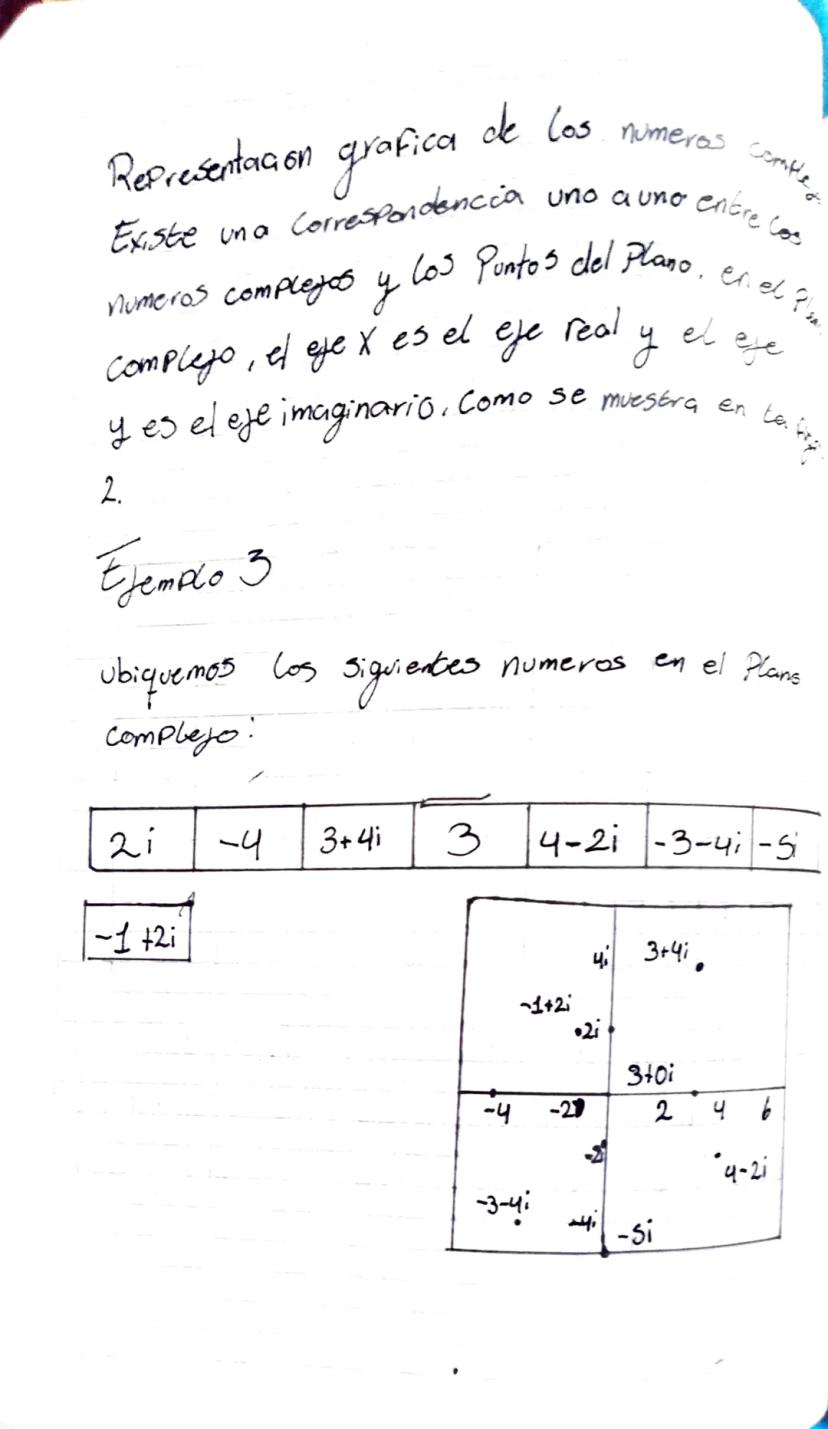 Representacion grafica de los numeros
Existe una correspondencia uno a uno entre los
numeros complejos y los Puntos del Plano. en el
complejo, el eje X es el eje real y el eje
y es el eje imaginario, Como se muestra en la
2.
Ejemplo 3
Ubiquemos los siguientes numeros en el Plano
complejo:
2i -4 3+4i 3 4-2i -3-4i -5i
-1+2i
4i 3+4i
-1+2i
2i
3+0i
-4 -2 2 4 6
-2i
4-2i
-3-4i
-4i
-5i